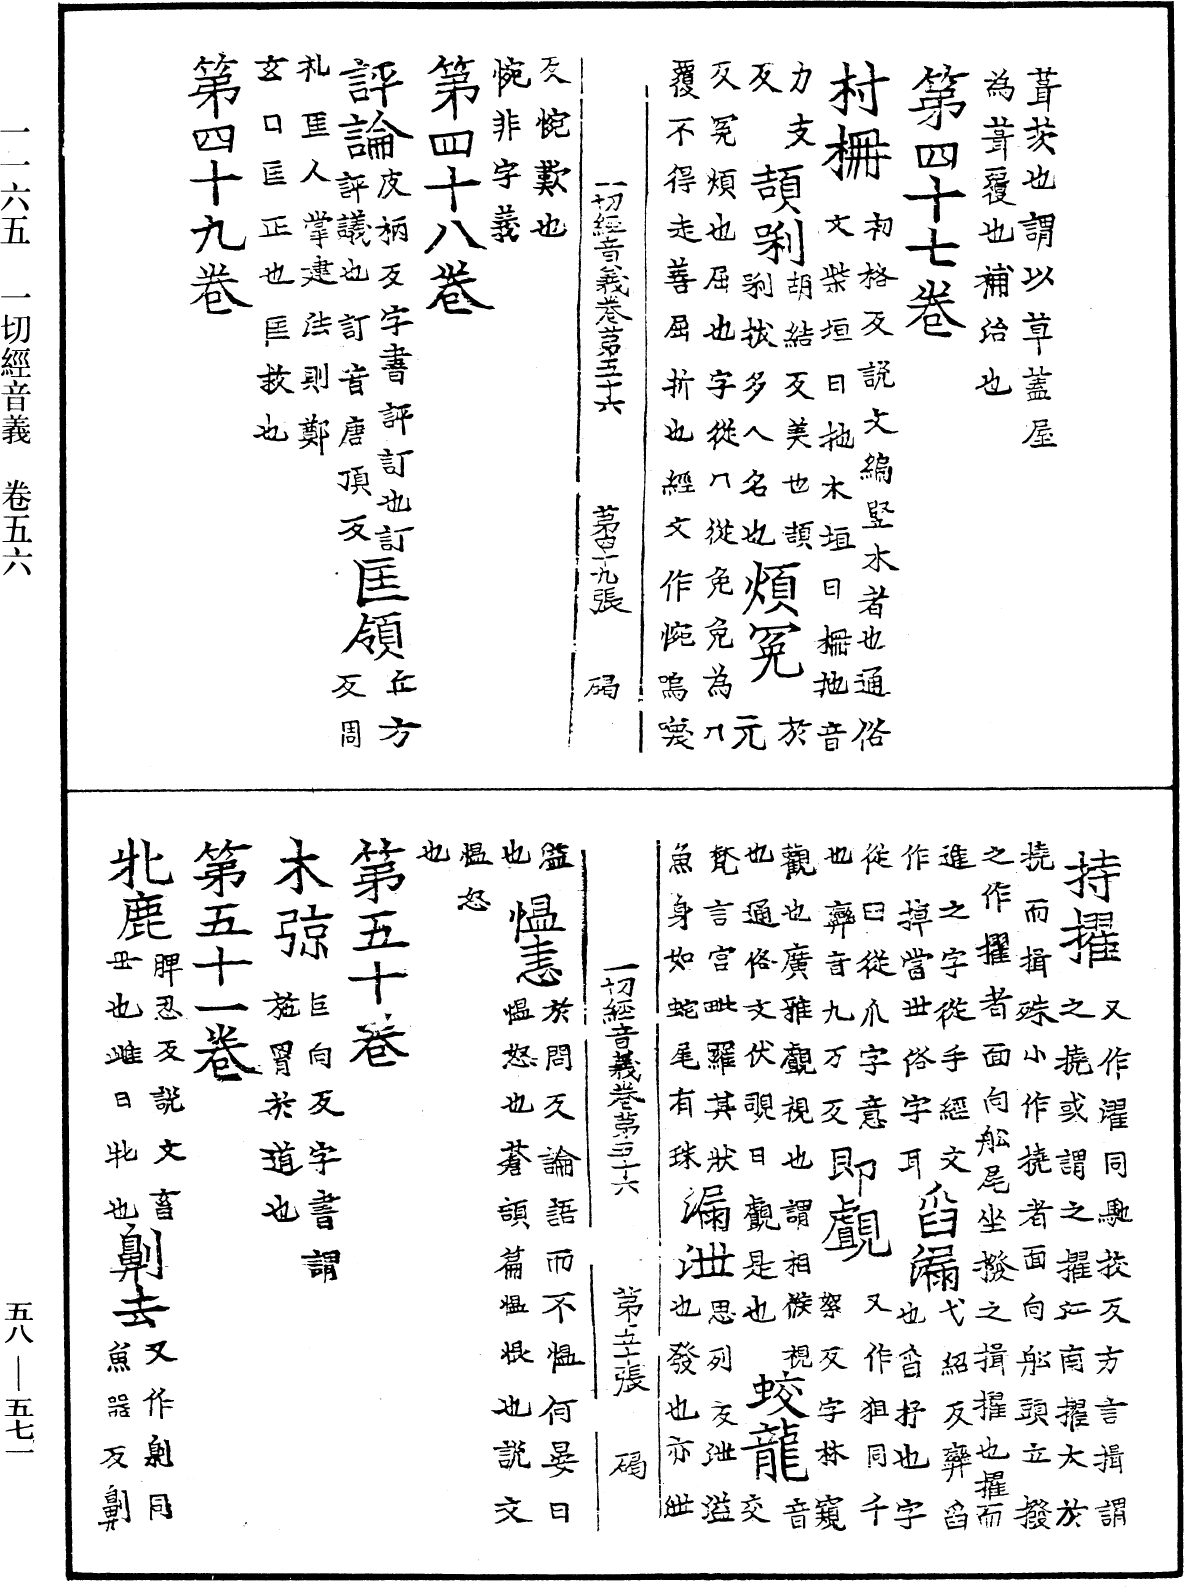 一一六五 一切經音義 卷五六
茸茨也謂以草蓋屋
為茸覆也補治也
第四十七卷
村柵 初格反說文編竪木者也通俗
文柴垣曰杝木垣曰柵杝音
力支反 頡唎 胡結反美也頡
唎拔多人名也 煩冤 於元
反冤煩也屈也字從冂從兔兔為冂
覆不得走善屈折也經文作惋嗚喚
一切經音義卷第五十六 第四十九張 碣
反惋歎也
惋非字義
第四十八卷
評論 皮柄反字書評訂也訂
評議也訂音唐頂反 匡領 丘方反周
礼匡人掌建法則鄭
玄曰匡正也匡救也
第四十九卷
持擢 又作濯同馳挍反方言揖謂
之撓或謂之擢江南擢大於
撓而揖殊小作撓者面向舩頭立撥
之作擢者面向舩尾坐撥之揖擢也擢而
進之字從手經文 舀漏 弋紹反彛舀
作掉當世俗字耳 也舀抒也字
從臼從爪字意 即覰 又作狙同千
也彛音九万反 絮反字林窺
觀也廣雅覰視也謂相候視 蛟龍 音交
也通俗文伏覗曰覰是也
梵言宮毗羅其狀 漏泄 思列反泄溢
魚身如蛇尾有珠 也發也亦泄
一切經音義卷第五十六 第五十張 碣
溢也 愠恚 於問反論語而不愠何晏曰
愠怒也蒼頡篇愠恨也說文
愠怒也
第五十卷
木弶 巨向反字書謂
施罥於道也
第五十一卷
牝鹿 脾忍反說文畜
毋也雌曰牝也 劓去 又作劓同
魚器反劓
五八—五七一